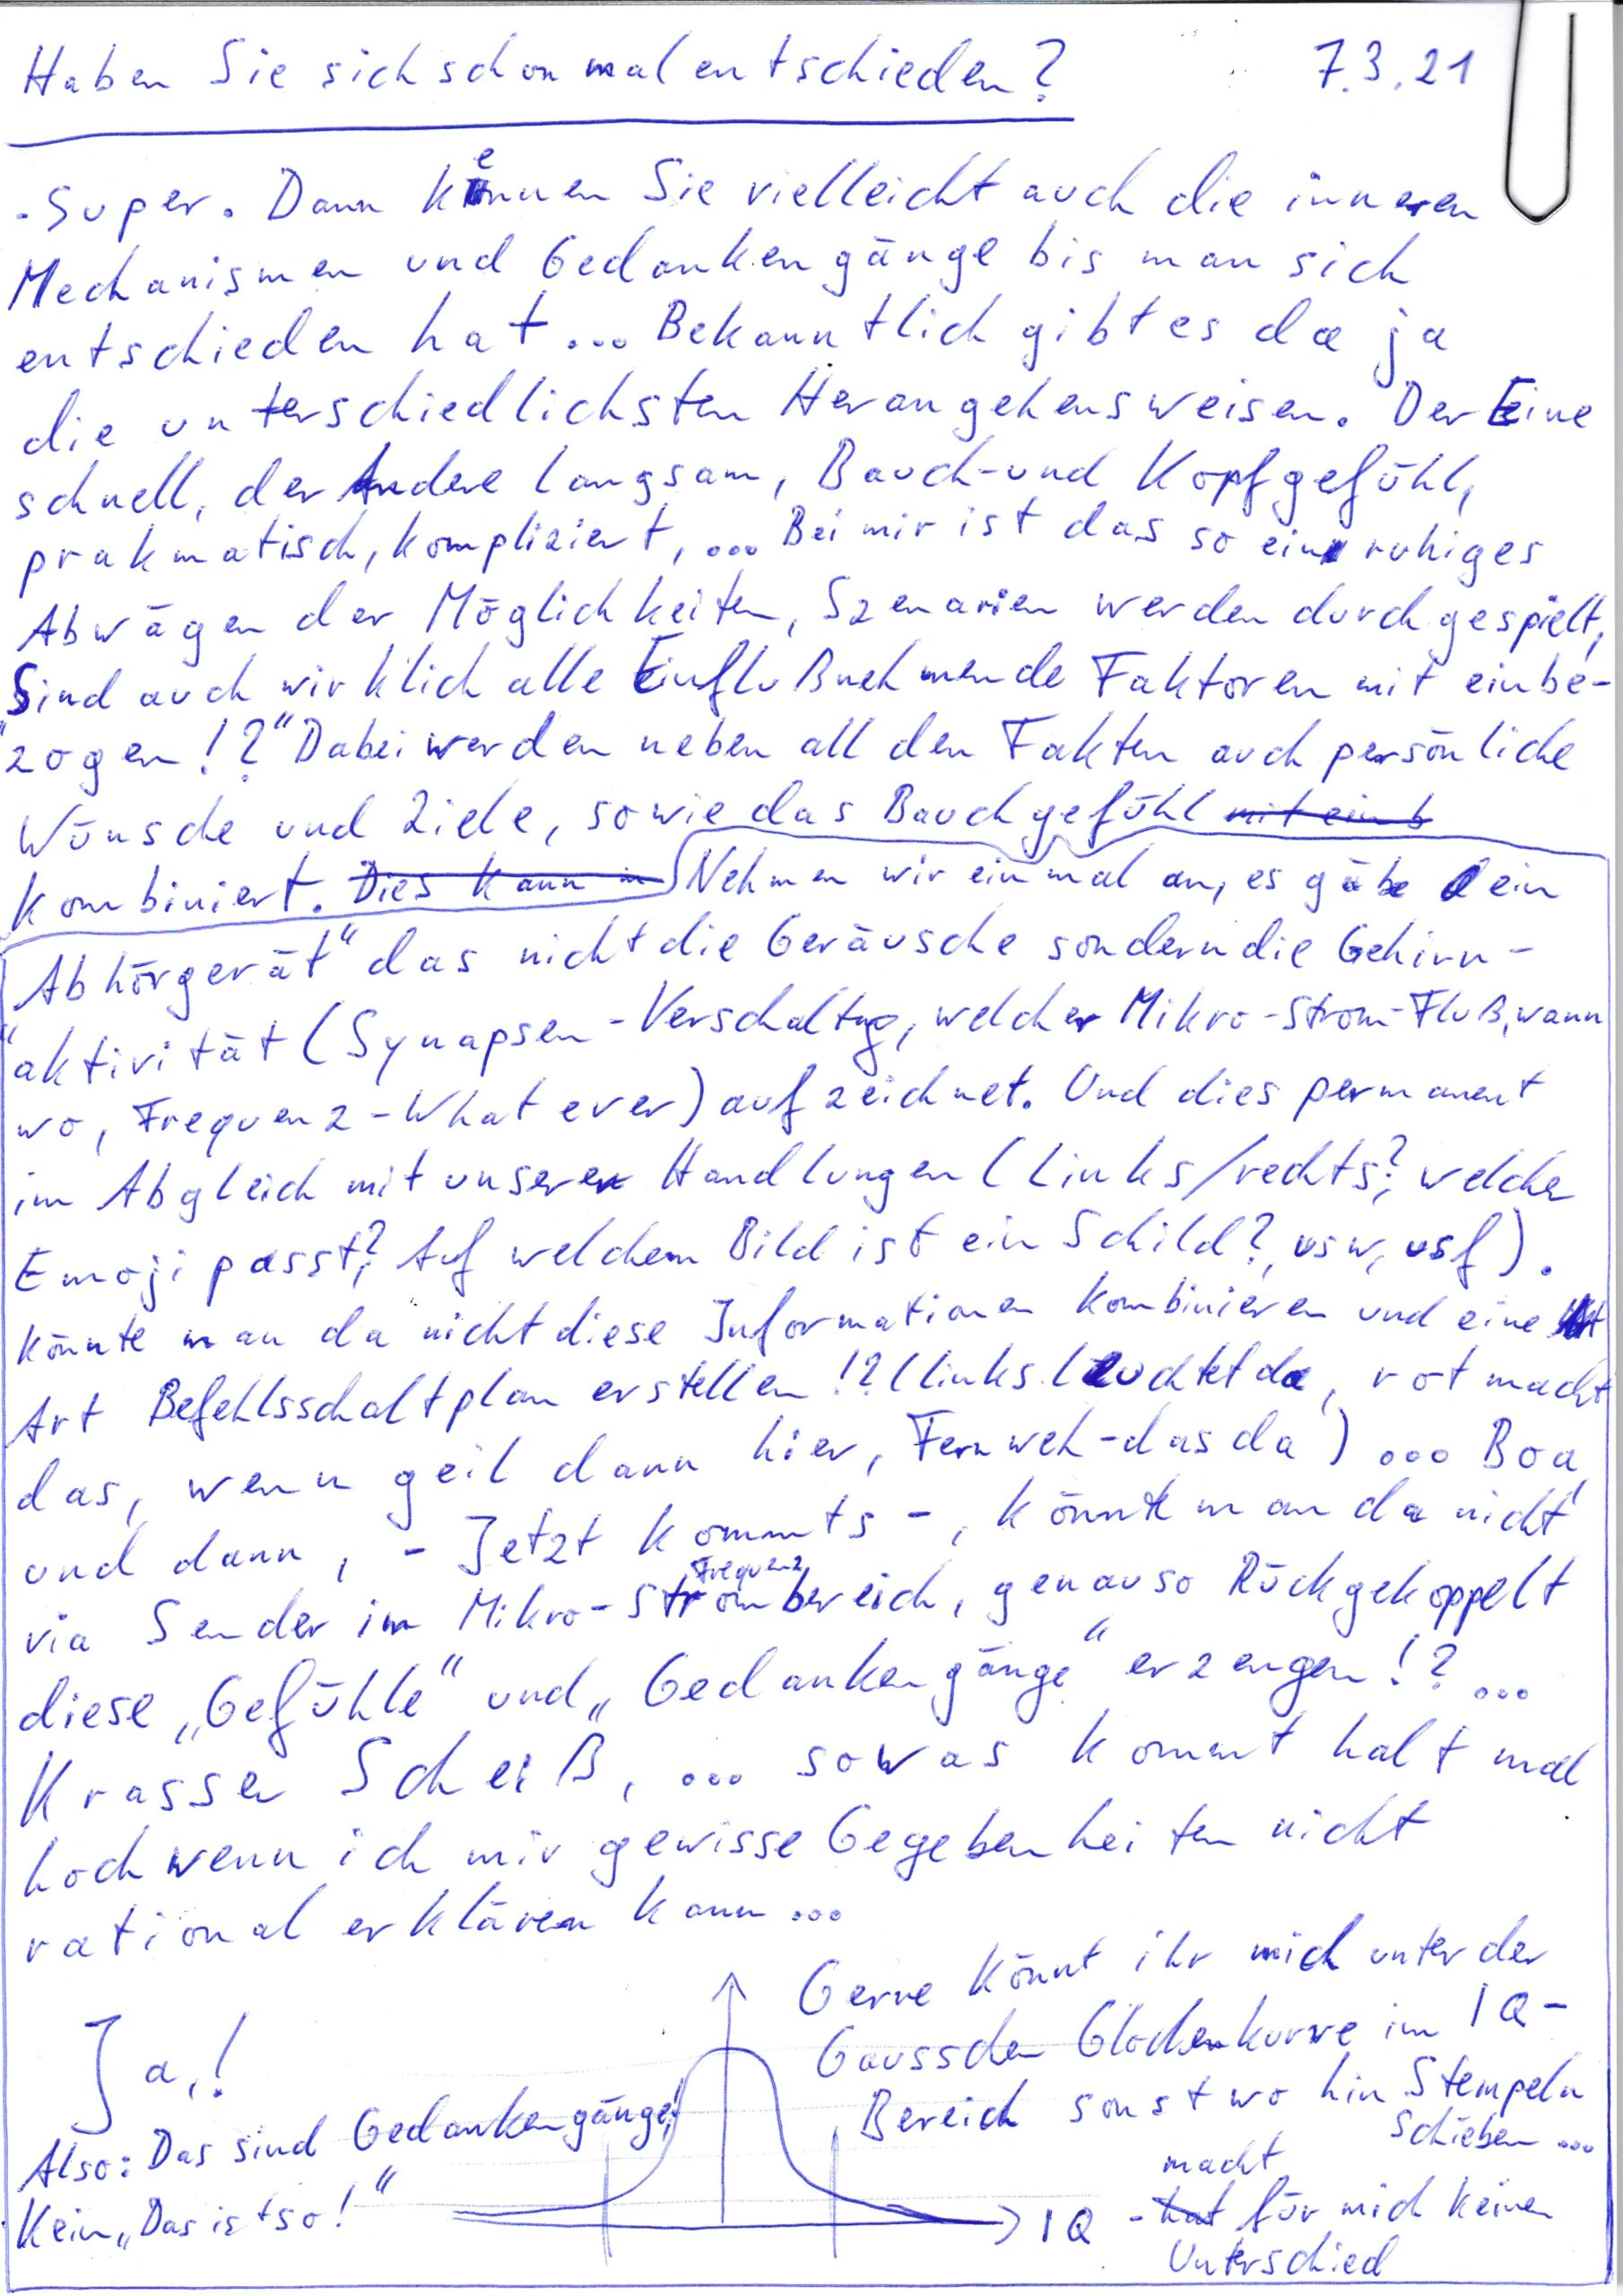 Haben Sie sich schon mal entschieden? 7.3.21
- Super. Dann kennen Sie vielleicht auch die inneren
Mechanismen und Gedankengänge bis man sich
entschieden hat ... Bekanntlich gibt es da ja
die unterschiedlichsten Herangehensweisen. Der Eine
schnell, der Andere langsam, Bauch- und Kopfgefühl,
prakmatisch, kompliziert, ... Bei mir ist das so ein ruhiges
Abwägen der Möglichkeiten, Szenarien werden durchgespielt,
Sind auch wirklich alle Einflußnehmende Faktoren mit einbe-
"zogen!?" Dabei werden neben all den Fakten auch persönliche
Wünsche und Ziele, sowie das Bauchgefühl mit einb
kombiniert. Dies kann in Nehmen wir einmal an, es gäbe ein
Abhörgerät" das nicht die Geräusche sondern die Gehirn-
"aktivität (Synapsen-Verschaltug, welcher Mikro-Strom-Fluß, wann
wo, Frequenz - What ever) aufzeichnet. Und dies permanent
im Abgleich mit unseren Handlungen (Links/rechts?, welcher
Emoji passt?, Auf welchem Bild ist ein Schild?, usw, usf).
Könnte man da nicht diese Informationen kombinieren und eine
Art Befehlsschaltplan erstellen!? (links leuchtet da, rot macht
das, wenn geil dann hier, Fernweh - das da) ... Boa,
und dann, - Jetzt kommts -, könnte man da nicht
Frequenz
via Sender im Mikro-Strombereich, genauso Rückgekoppelt
diese „Gefühle" und „Gedankengänge" erzeugen!? ...
Krasser Scheiß, ... sowas kommt halt mal
hoch wenn ich mir gewisse Gegebenheiten nicht
rational erklären kann ...
Gerne könnt ihr mich unter der
Gausschen Glockenkurve im IQ-
Bereich sonst wo hin Stempeln
Schieben ...
macht
IQ - hat für mich keinen
Unterschied
Ja,!
Also: Das sind Gedankengänge!
Kein „Das ist so!"